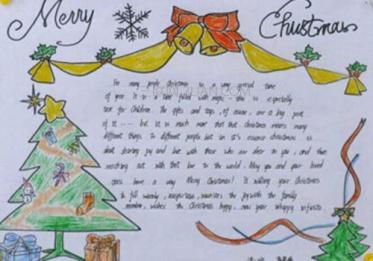 Merry Christmas
For many people Christmas is a very special time
of year. It is a time filled with magic - this is especially
true for children. The gifts and toys, of course, are a big part
of it --- but it is much more that that christmas means many
different things to different people but in it's essence christmas is
about sharing joy and love with those who are dear to you, and then
reaching out with that love to the world. May you and your loved
ones have a very Merry Christmas! It
to fill the joy with the family
wishes the Christmas happy, new year